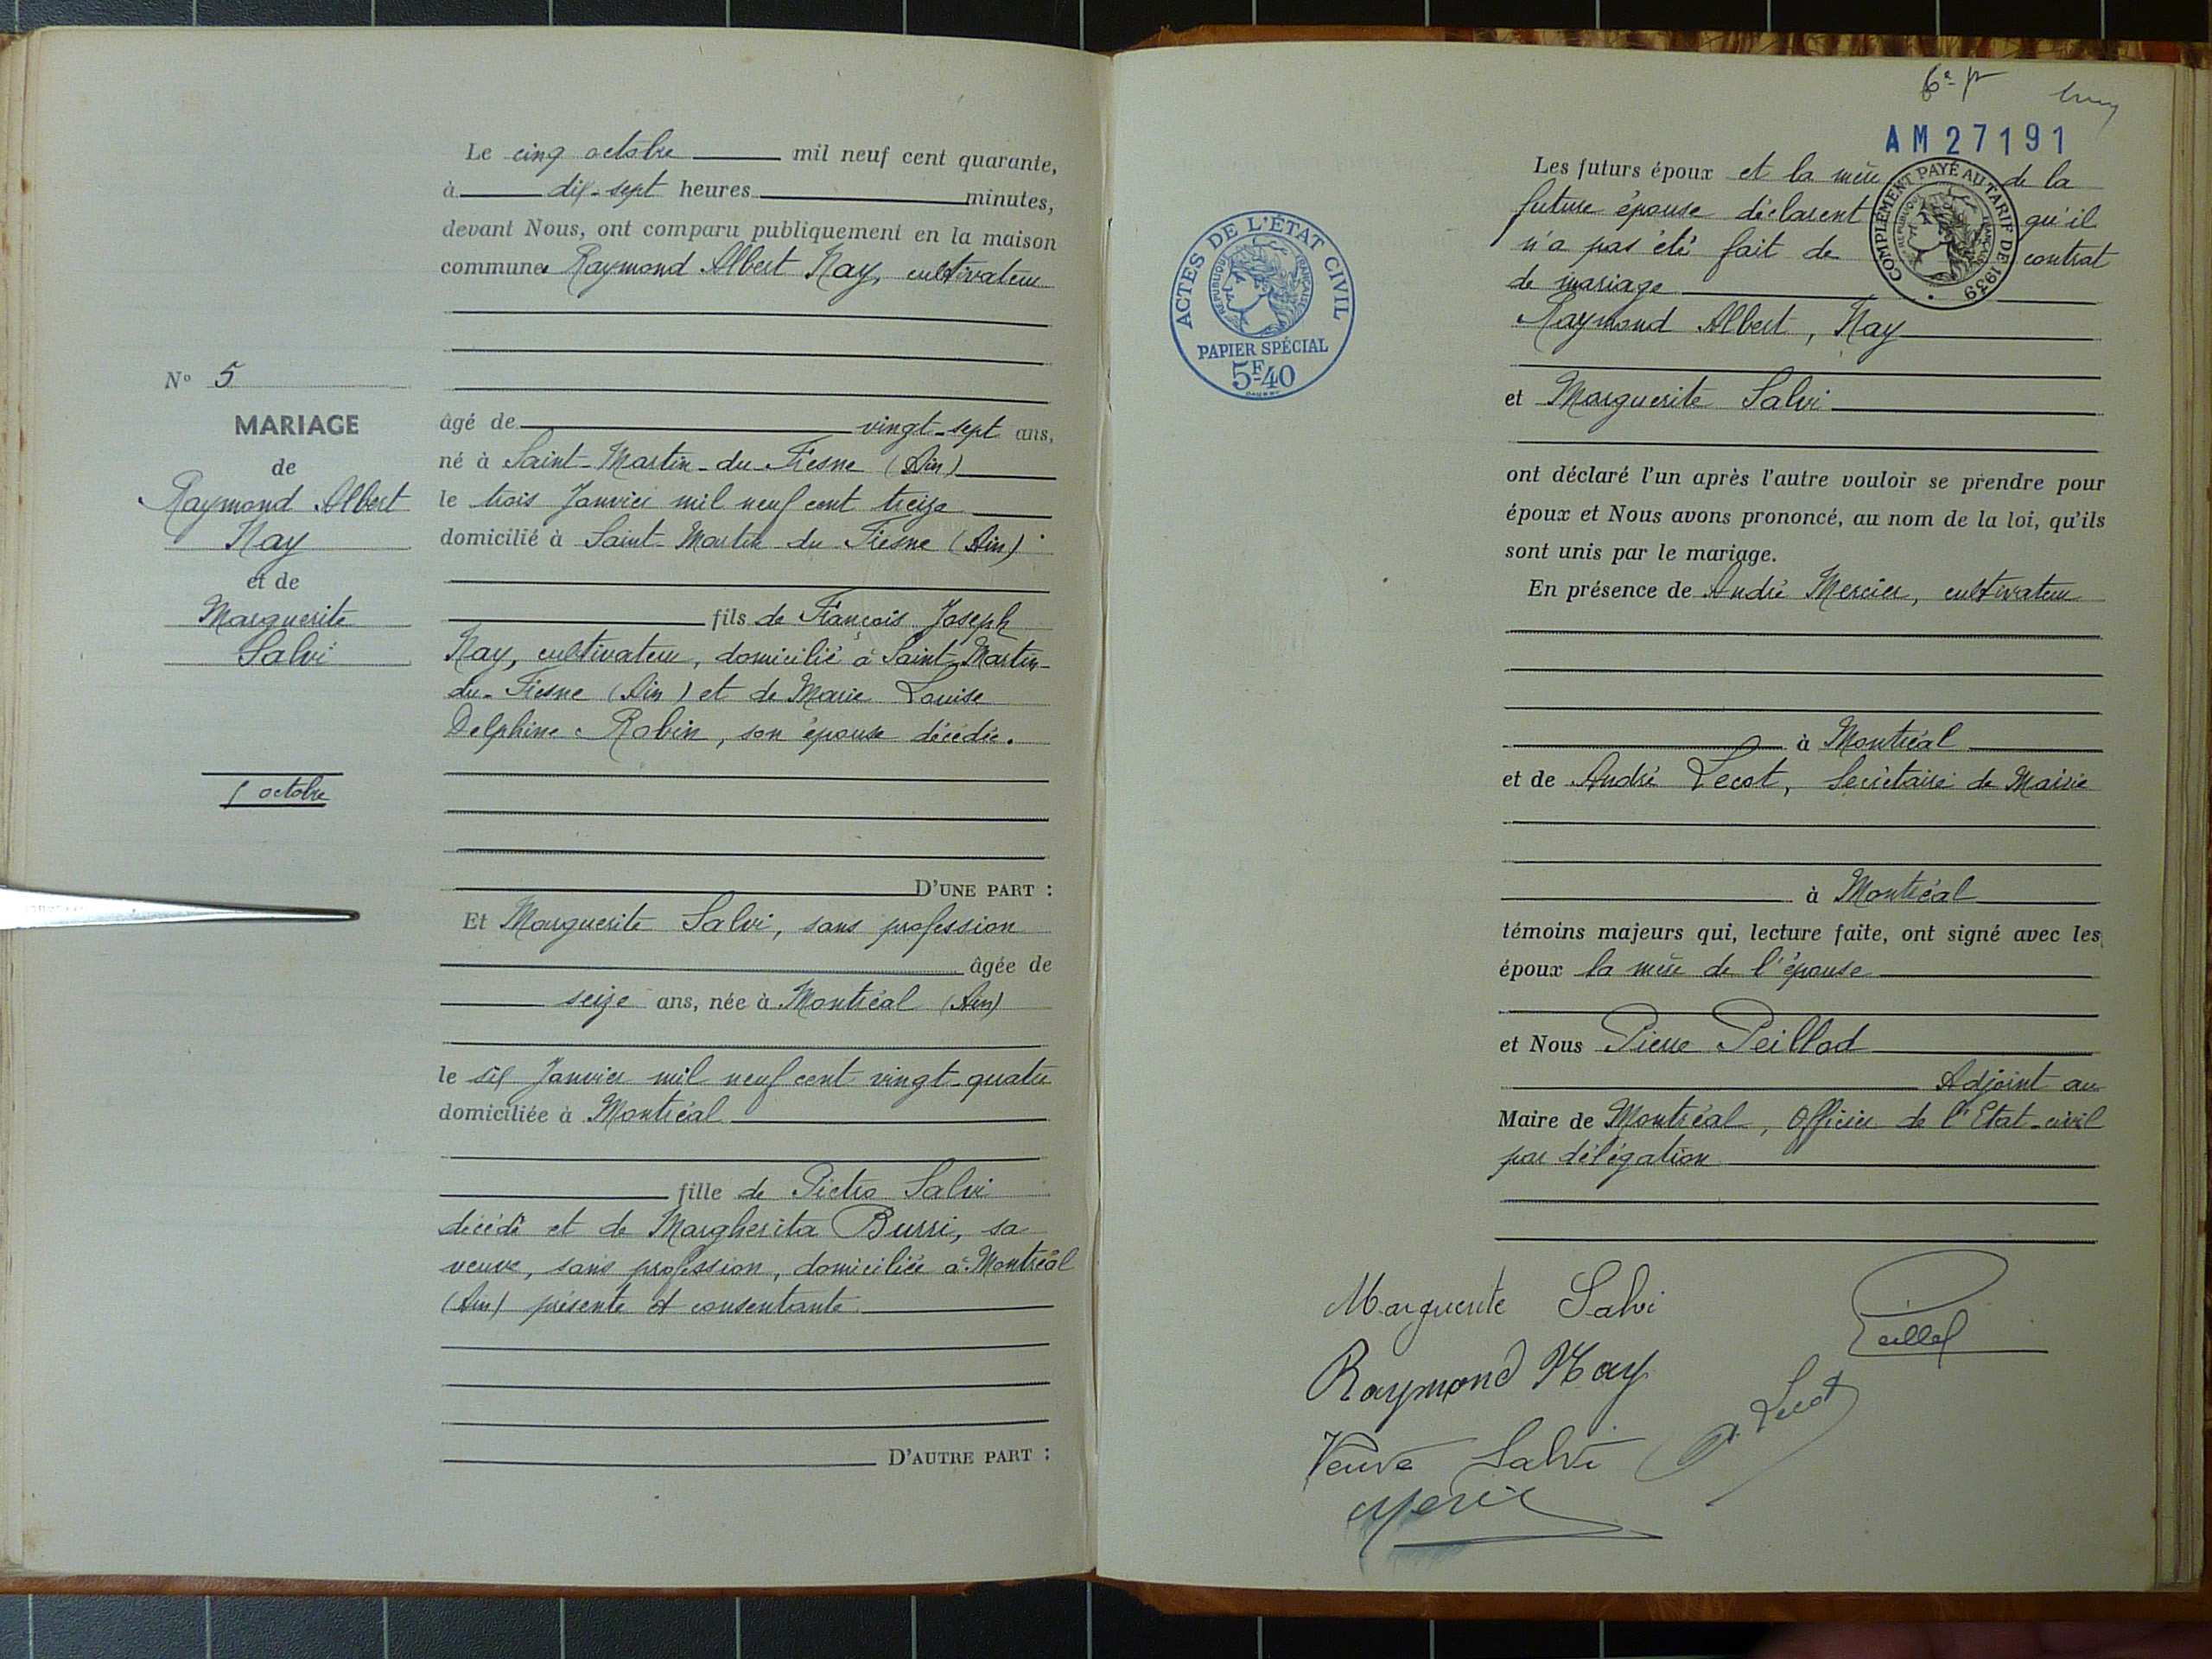 Le cinq octobre mil neuf cent quarante,
à dix-sept heures minutes,
devant Nous, ont comparu publiquement en la maison
commune Raymond Albert Nay, cultivateur
âgé de vingt-sept ans,
né à Saint-Martin-du-Fresne (Ain)
le trois Janvier mil neuf cent treize
domicilié à Saint-Martin du Fresne (Ain)
fils de François Joseph
Nay, cultivateur, domicilié à Saint-Martin-
du-Fresne (Ain) et de Marie Louise
Delphine Robin, son épouse décédée.
D'UNE PART :
Et Marguerite Salvi, sans profession
âgée de
seize ans, née à Montréal (Ain)
le six Janvier mil neuf cent vingt-quatre
domiciliée à Montréal
fille de Pietro Salvi
décédé et de Margherita Burri, sa
veuve, sans profession, domiciliée à Montréal
(Ain) présente et consentante
D'AUTRE PART :
N° 5
MARIAGE
de
Raymond Albert
Nay
et de
Marguerite
Salvi
5 octobre
ACTES DE L'ÉTAT CIVIL
RÉPUBLIQUE FRANÇAISE
PAPIER SPÉCIAL
5F40
AM 27191
COMPLÉMENT PAYÉ AU TARIF DE 1939
RÉPUBLIQUE FRANÇAISE
Les futurs époux et la mère de la
future épouse déclarent qu'il
n'a pas été fait de contrat
de mariage
Raymond Albert, Nay
et Marguerite Salvi
ont déclaré l'un après l'autre vouloir se prendre pour
époux et Nous avons prononcé, au nom de la loi, qu'ils
sont unis par le mariage.
En présence de André Mercier, cultivateur
à Montréal
et de André Lecot, Secrétaire de Mairie
à Montréal
témoins majeurs qui, lecture faite, ont signé avec les
époux la mère de l'épouse
et Nous Pierre Peillod
Adjoint au
Maire de Montréal, Officier de l'Etat-civil
par délégation
Marguerite Salvi
Peillod
Raymond Nay
A. Lecot
Veuve Salvi